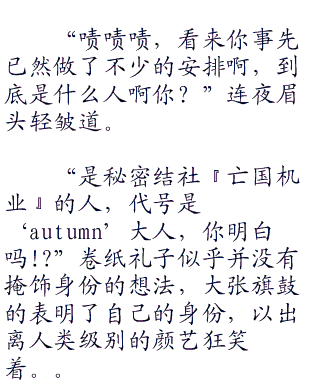 “啧啧啧，看来你事先
已然做了不少的安排啊，到
底是什么人啊你？”连夜眉
头轻皱道。
“是秘密结社『亡国机
业』的人，代号是
‘autumn’大人，你明白
吗!?”卷纸礼子似乎并没有
掩饰身份的想法，大张旗鼓
的表明了自己的身份，以出
离人类级别的颜艺狂笑
着。。